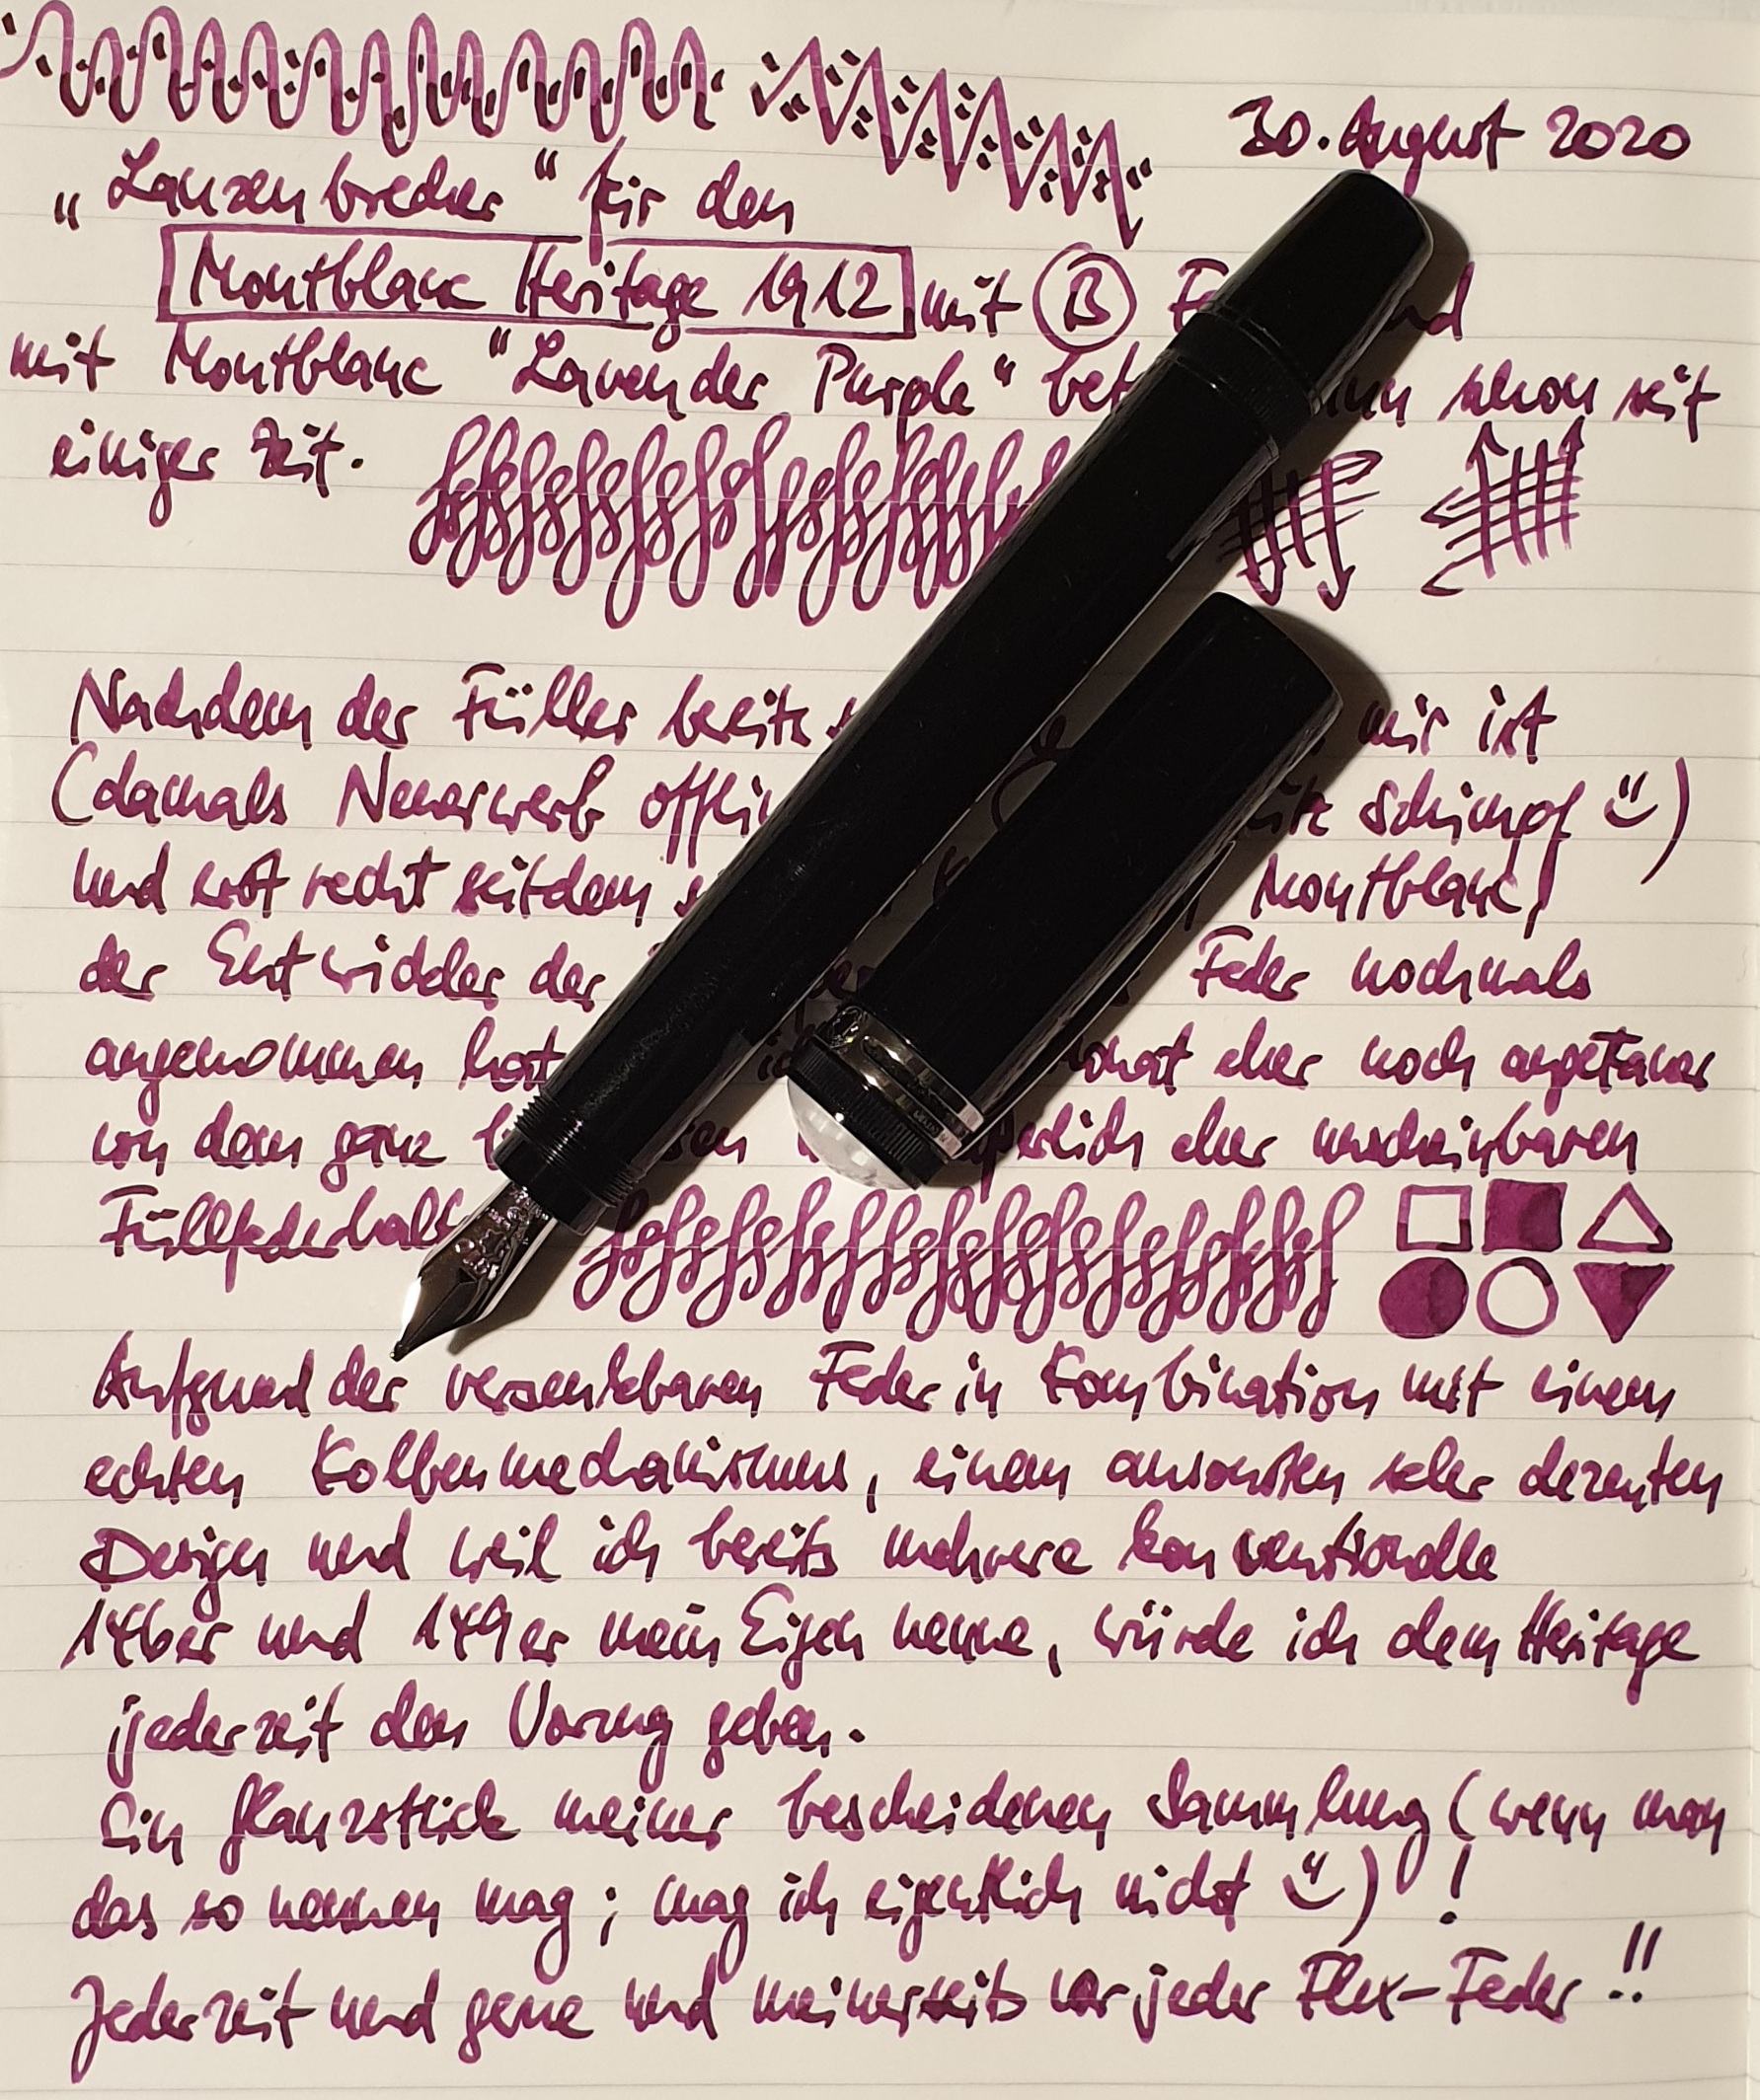 30. August 2020
„Lanzenbrecher" für den
Montblanc Heritage 1912 mit B
mit Montblanc "Lavender Purple" schon seit
einiger Zeit.
Nachdem der Füller bereits mir ist
(damals Neuerwerb Schimpf
und erst recht seitdem Montblanc,
der Entwickler der Feder nochmals
angenommen hat eher noch angetaner
von dem ganz eher unscheinbaren
Aufgrund der versenkbaren Feder in Kombination mit einem
echten Kolbenmechanismus, einem ansonsten sehr dezenten
Design und weil ich bereits mehrere konventionelle
146er und 149er mein Eigen nenne, würde ich dem Heritage
jederzeit den Vorzug geben.
Ein Glanzstück meiner bescheidenen Sammlung (wenn man
das so nennen mag; mag ich eigentlich nicht )!
Jederzeit und gerne und meinerseits vor jeder Flex-Feder!!